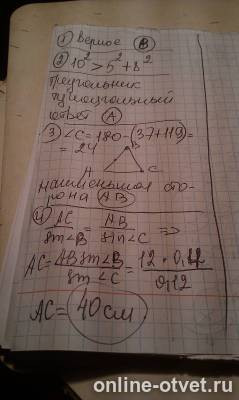 ① Верное (B)
② 10² > 5² + 8²
треугольник
тупоугольный
ответ (A)
③ ∠C = 180 - (37 + 119) =
= 24
B
A C
наименьшая сто-
рона (AB)
④ AC / sin∠B = AB / sin∠C ⇒
AC = AB sin∠B / sin∠C = 12 · 0,4 / 0,12
AC = 40 см
online-otvet.ru